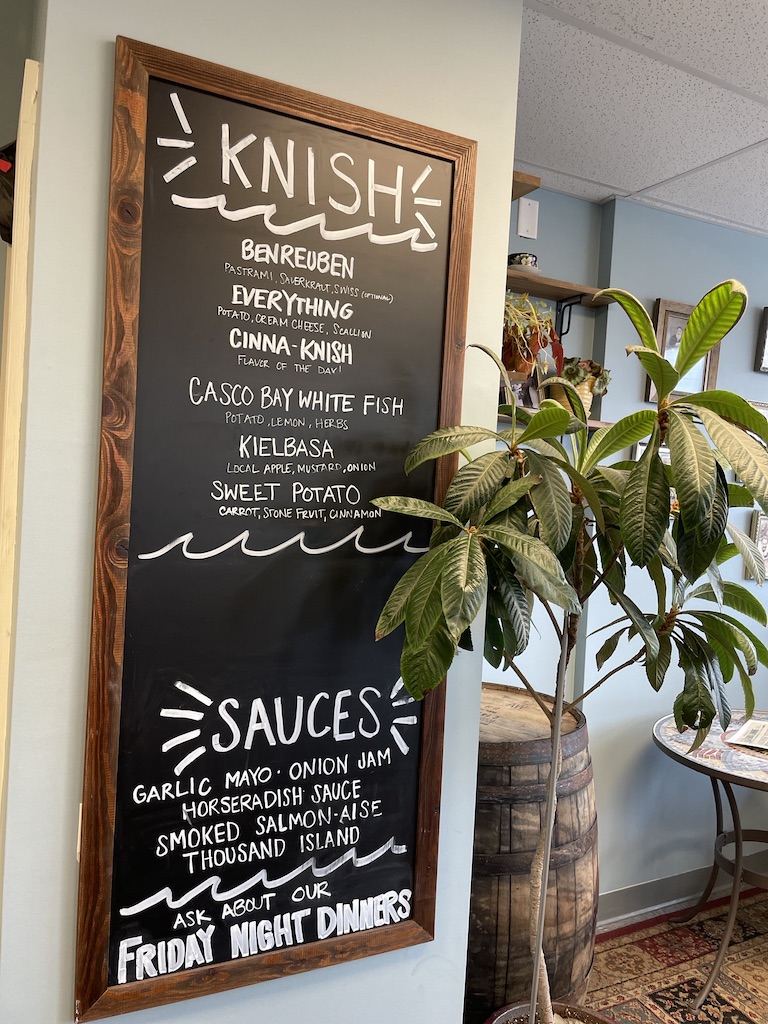 KNISH
BENREUBEN
PASTRAMI, SAUERKRAUT, SWISS (OPTIONAL)
EVERYTHING
POTATO, CREAM CHEESE, SCALLION
CINNA-KNISH
FLAVOR OF THE DAY!
CASCO BAY WHITE FISH
POTATO, LEMON, HERBS
KIELBASA
LOCAL APPLE, MUSTARD, ONION
SWEET POTATO
CARROT, STONE FRUIT, CINNAMON
SAUCES
GARLIC MAYO · ONION JAM
HORSERADISH SAUCE
SMOKED SALMON-AISE
THOUSAND ISLAND
ASK ABOUT OUR
FRIDAY NIGHT DINNERS